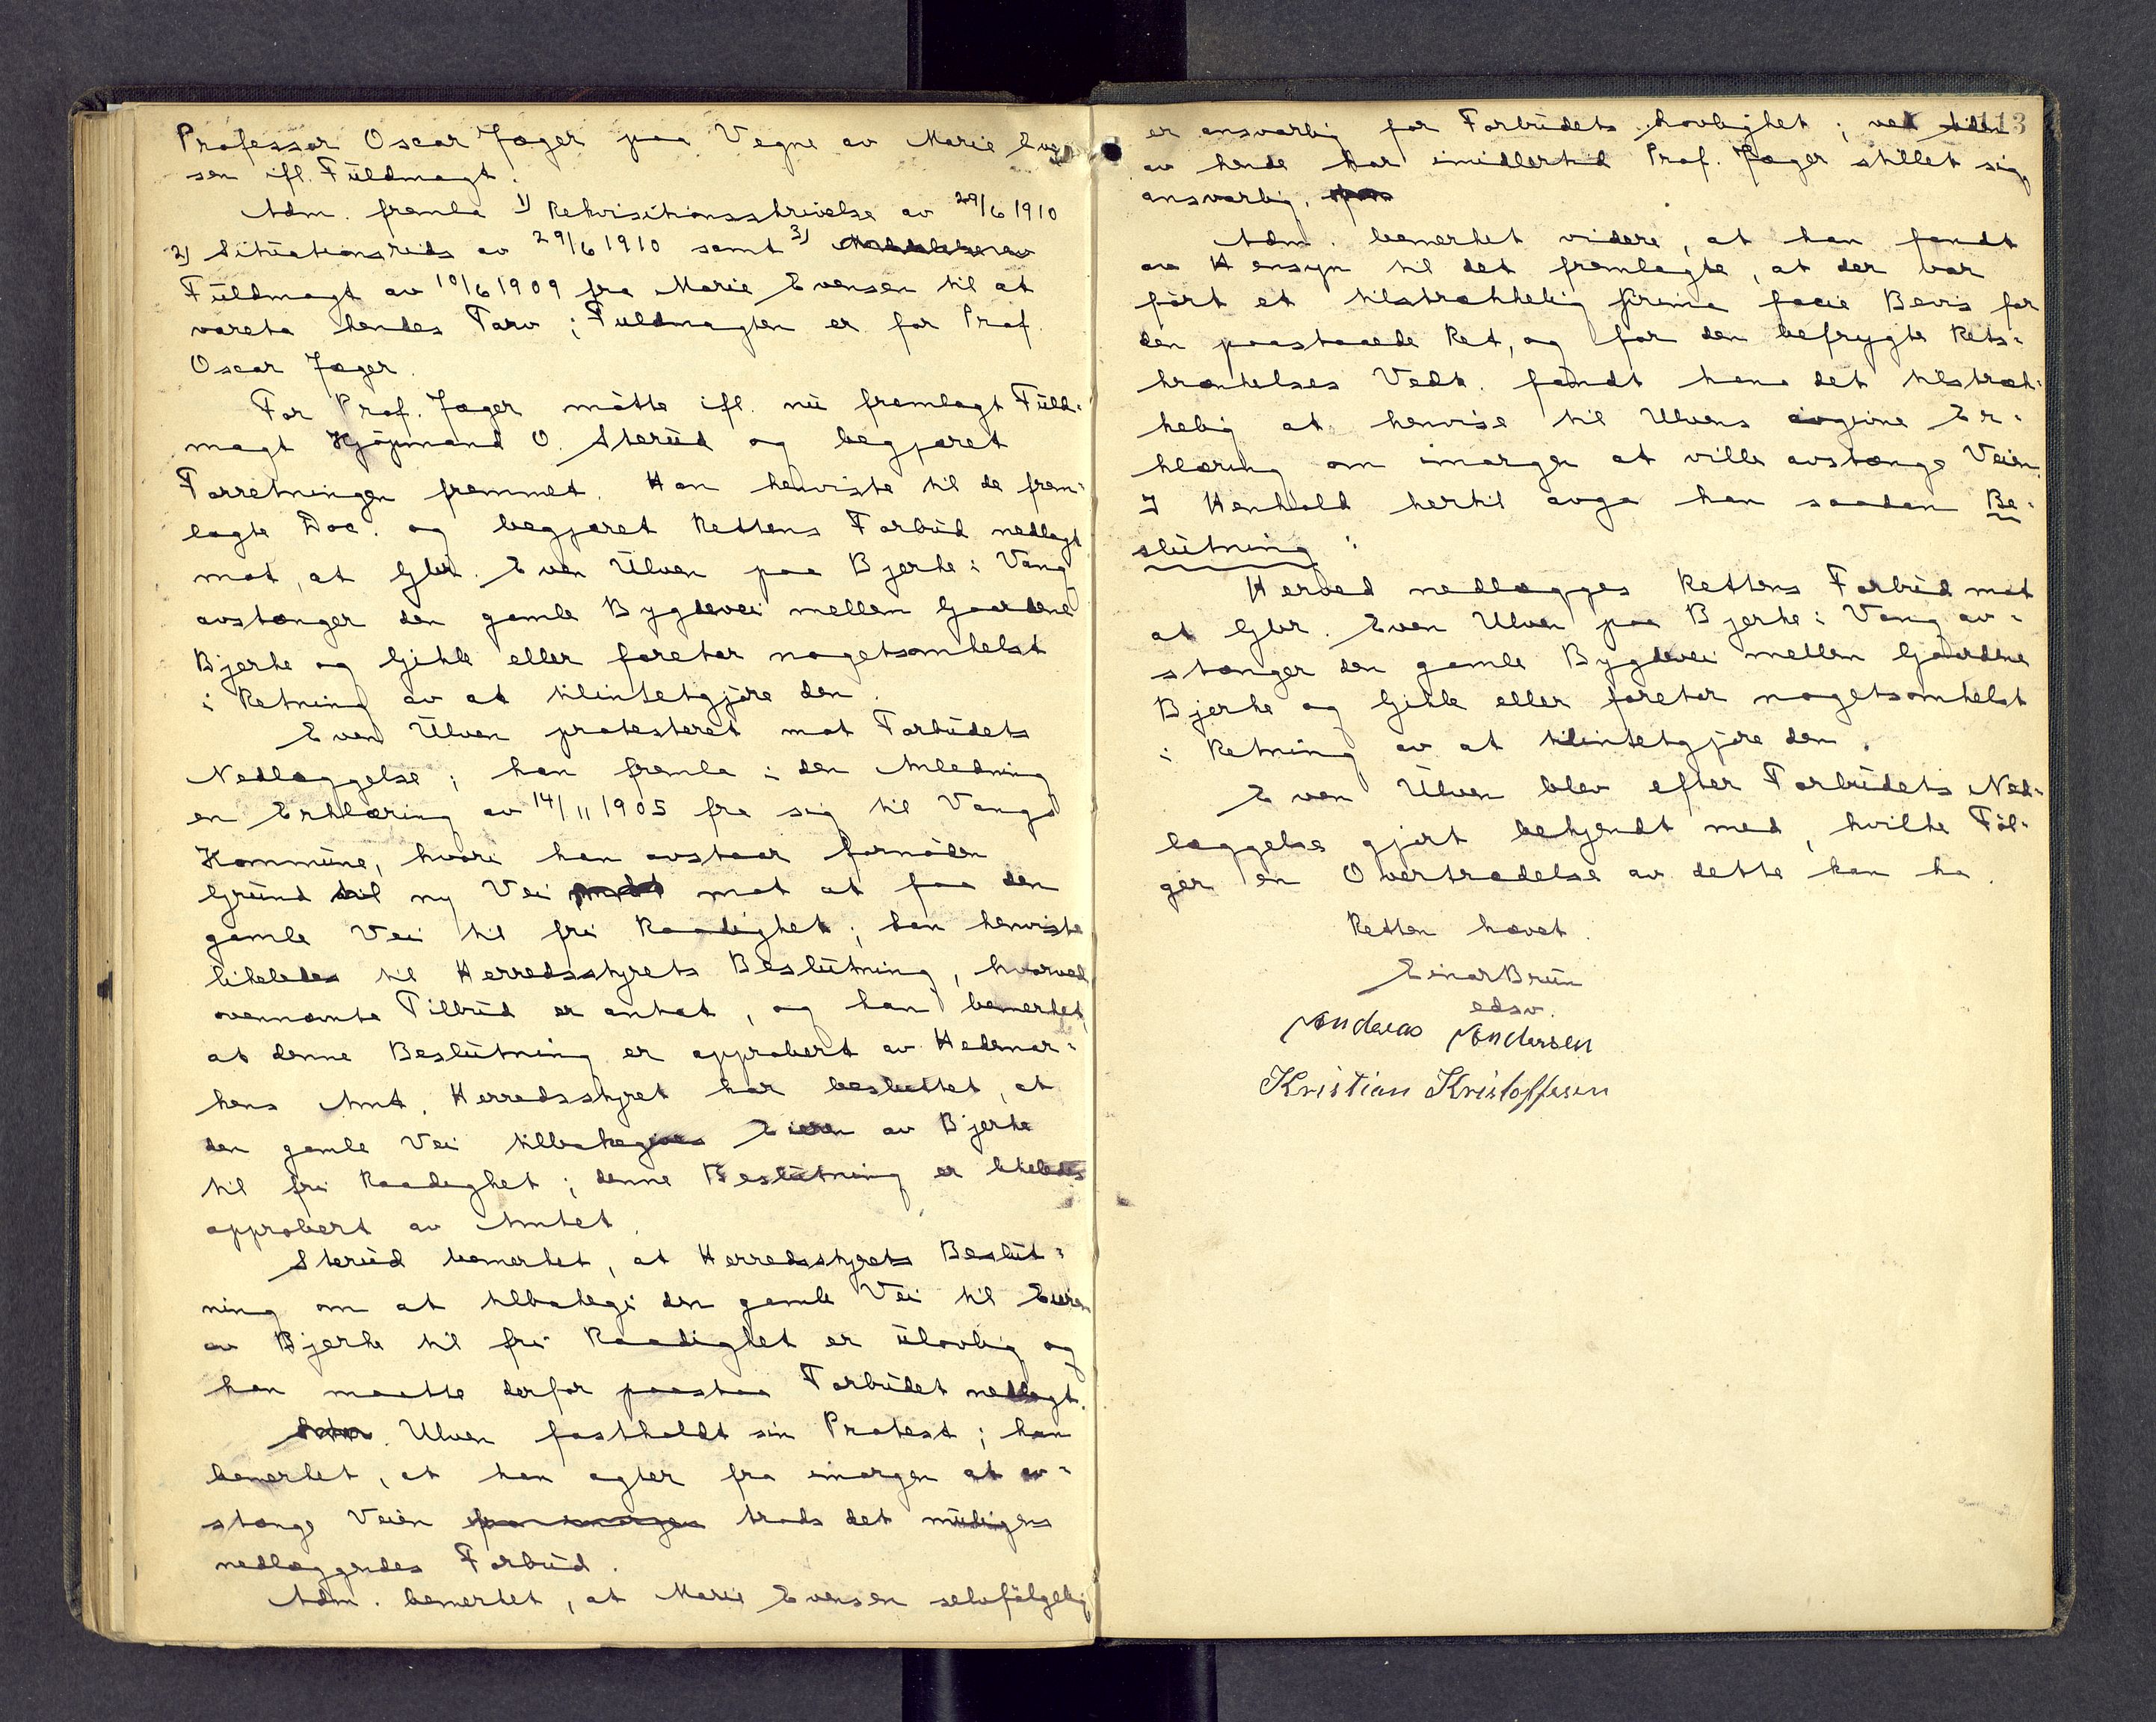 Professor Oscar Jæger paa Vegne av Marie Even
sen ifl. Fuldmagt.
Adm. fremla 1) Rekvisitionsskrivelse av 29/6 1910
2) Situationsrids av 29/6 1910 samt 3)
Fuldmagt av 10/6 1909 fra Marie Evensen til at
vareta hendes Tarv; Fuldmagten er for Prof.
Oscar Jæger.
For Prof. Jæger mötte ifl. nu fremlagt Fuld-
magt Kjöpmand O. Sterud og begjæret
Forretningen fremmet. Han henviste til de frem-
lagte Doc. og begjæret Rettens Forbud nedlagt
mot, at Gbr. Even Ulven paa Bjerke i Vang
avstænger den gamle Bygdevei mellem Gaardene
Bjerke og Gihle eller foretar nogetsomhelst
i Retning av at tilintetgjøre den.
Even Ulven protesteret mot Forbudets
Nedlæggelse; han fremla i den Anledning
en Erklæring av 14/11 1905 fra sig til Vangs
Kommune, hvori han avstaar fornöden
Grund til ny Vei mot at faa den
gamle Vei til fri Raadighet; han henviste
likeledes til Herredsstyrets Beslutning, hvorved
ovennævnte Tilbud er antat, og han bemerket,
at denne Beslutning er approbert av Hedemar-
kens Amt. Herredsstyret har besluttet, at
den gamle Vei tilbakegives Eieren av Bjerke
til fri Raadighet; denne Beslutning er likeledes
approbert av Amtet.
Sterud bemerket, at Herredsstyrets Beslut-
ning om at tilbakegi den gamle Vei til Eieren
av Bjerke til fri Raadighet er ulovlig og
han maatte derfor paastaa Forbudet nedlagt.
Ulven fastholdt sin Protest; han
bemerket, at han agter fra imorgen at av-
stænge Veien fra imorgen trods det muligens
nedlæggendes Forbud.
Adm. bemerket, at Marie Evensen selvfölgelig
113
er ansvarlig for Forbudets Lovlighet; ved Siden
av hende har imidlertid Prof. Jæger stillet sig
ansvarlig.
Adm. bemerket videre, at han fandt
av Hensyn til det fremlagte, at der var
fört et tilstrækkelig prima facie Bevis for
den paastaaede Ret, og for den befrygte Rets-
krænkelses Vedk. fandt han det tilstræk-
kelig at henvise til Ulvens avgivne Er-
klæring om imorgen at ville avstænge Veien.
I Henhold hertil avga han saadan Be-
slutning:
Herved nedlægges Rettens Forbud mot
at Gbr. Even Ulven paa Bjerke i Vang av-
stænger den gamle Bygdevei mellem Gaardene
Bjerke og Gihle eller foretar nogetsomhelst
i Retning av at tilintetgjøre den.
Even Ulven blev efter Forbudets Ned-
læggelse gjort bekjendt med, hvilke Föl-
ger en Overtrædelse av dette kan ha.
Retten hævet.
Einar Brun
edsv.
Andreas Andersen
Kristian Kristoffersen